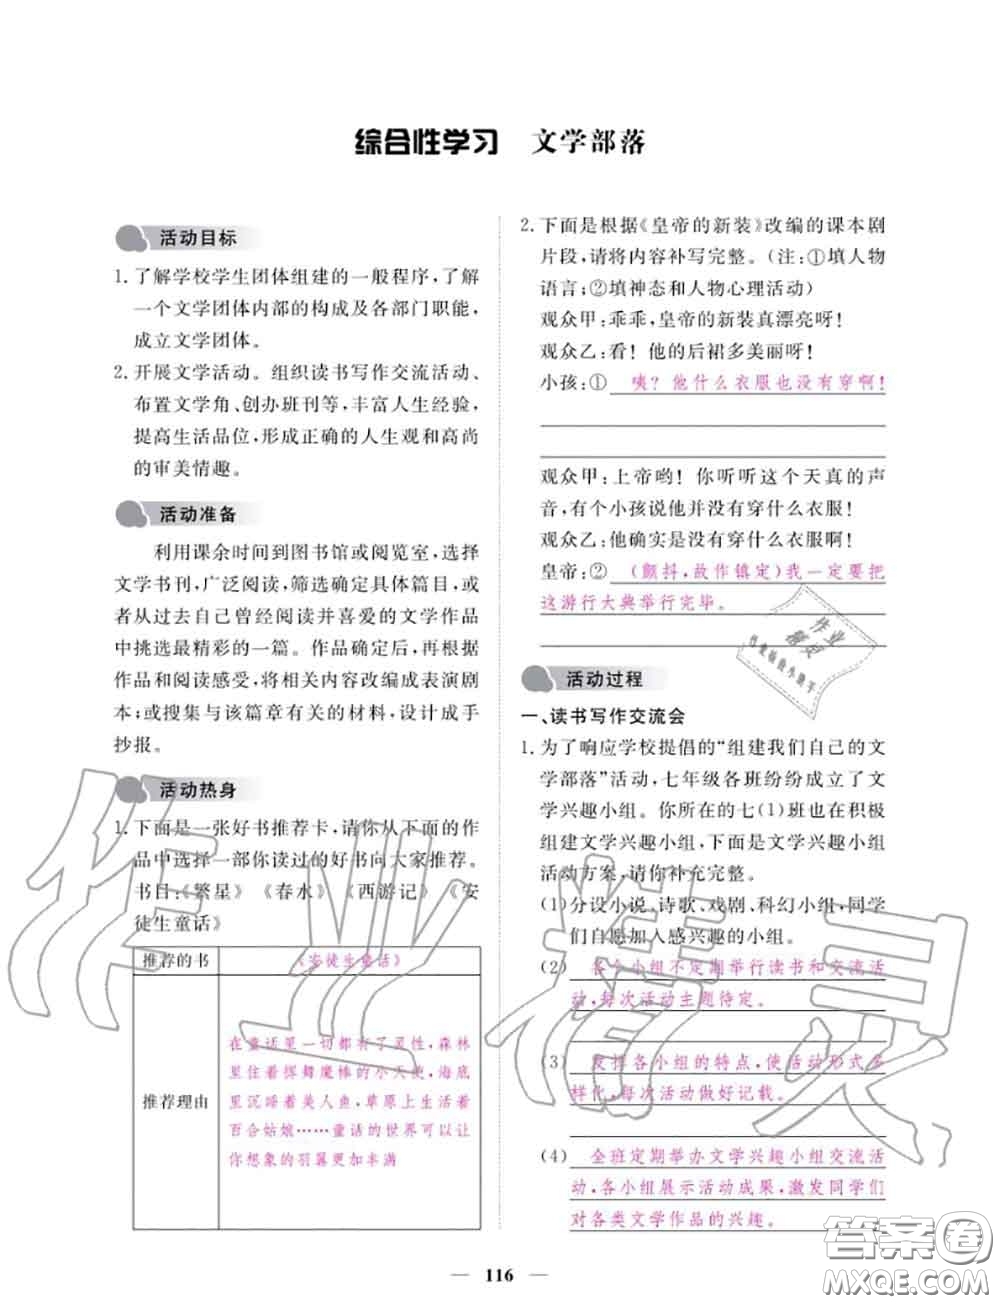 综合性学习　文学部落
活动目标
1. 了解学校学生团体组建的一般程序,了解
一个文学团体内部的构成及各部门职能,
成立文学团体。
2. 开展文学活动。组织读书写作交流活动、
布置文学角、创办班刊等,丰富人生经验,
提高生活品位,形成正确的人生观和高尚
的审美情趣。
活动准备
利用课余时间到图书馆或阅览室,选择
文学书刊,广泛阅读,筛选确定具体篇目;或
者从过去自己曾经阅读并喜爱的文学作品
中挑选最精彩的一篇。作品确定后,再根据
作品和阅读感受,将相关内容改编成表演剧
本;或搜集与该篇章有关的材料,设计成手
抄报。
活动热身
1. 下面是一张好书推荐卡,请你从下面的作
品中选择一部你读过的好书向大家推荐。
书目:《繁星》《春水》《西游记》《安
徒生童话》
推荐的书　《安徒生童话》
推荐理由
在童话里一切都有了灵性,森林
里住着挥舞魔棒的小天使,海底
里沉睡着美人鱼,草原上生活着
百合姑娘……童话的世界可以让
你想象的羽翼更加丰满
2. 下面是根据《皇帝的新装》改编的课本剧
片段,请将内容补写完整。(注:①填人物
语言;②填神态和人物心理活动)
观众甲:乖乖,皇帝的新装真漂亮呀!
观众乙:看!他的后裙多美丽呀!
小孩:① 咦?他什么衣服也没有穿啊!
观众甲:上帝哟!你听听这个天真的声
音,有个小孩说他并没有穿什么衣服!
观众乙:他确实是没有穿什么衣服呀!
皇帝:② (颤抖,故作镇定)我一定要把
这游行大典举行完毕。
活动过程
一、读书写作交流会
1. 为了响应学校提倡的“组建我们自己的文
学部落”活动,七年级各班纷纷成立了文
学兴趣小组。你所在的七(1)班也在积极
组建文学兴趣小组,下面是文学兴趣小组
活动方案,请你补充完整。
(1)分设小说、诗歌、戏剧、科幻小组,同学
们自愿加入感兴趣的小组。
(2) 各个小组不定期举行读书和交流活
动,每次活动主题待定。
(3) 发挥各小组的特点,使活动形式多
样化,每次活动做好记载。
(4) 全班定期举办文学兴趣小组交流活
动,各小组展示活动成果,激发同学们
对各类文学作品的兴趣。
116
作业精灵
作业精灵
答案圈
MXQE.COM